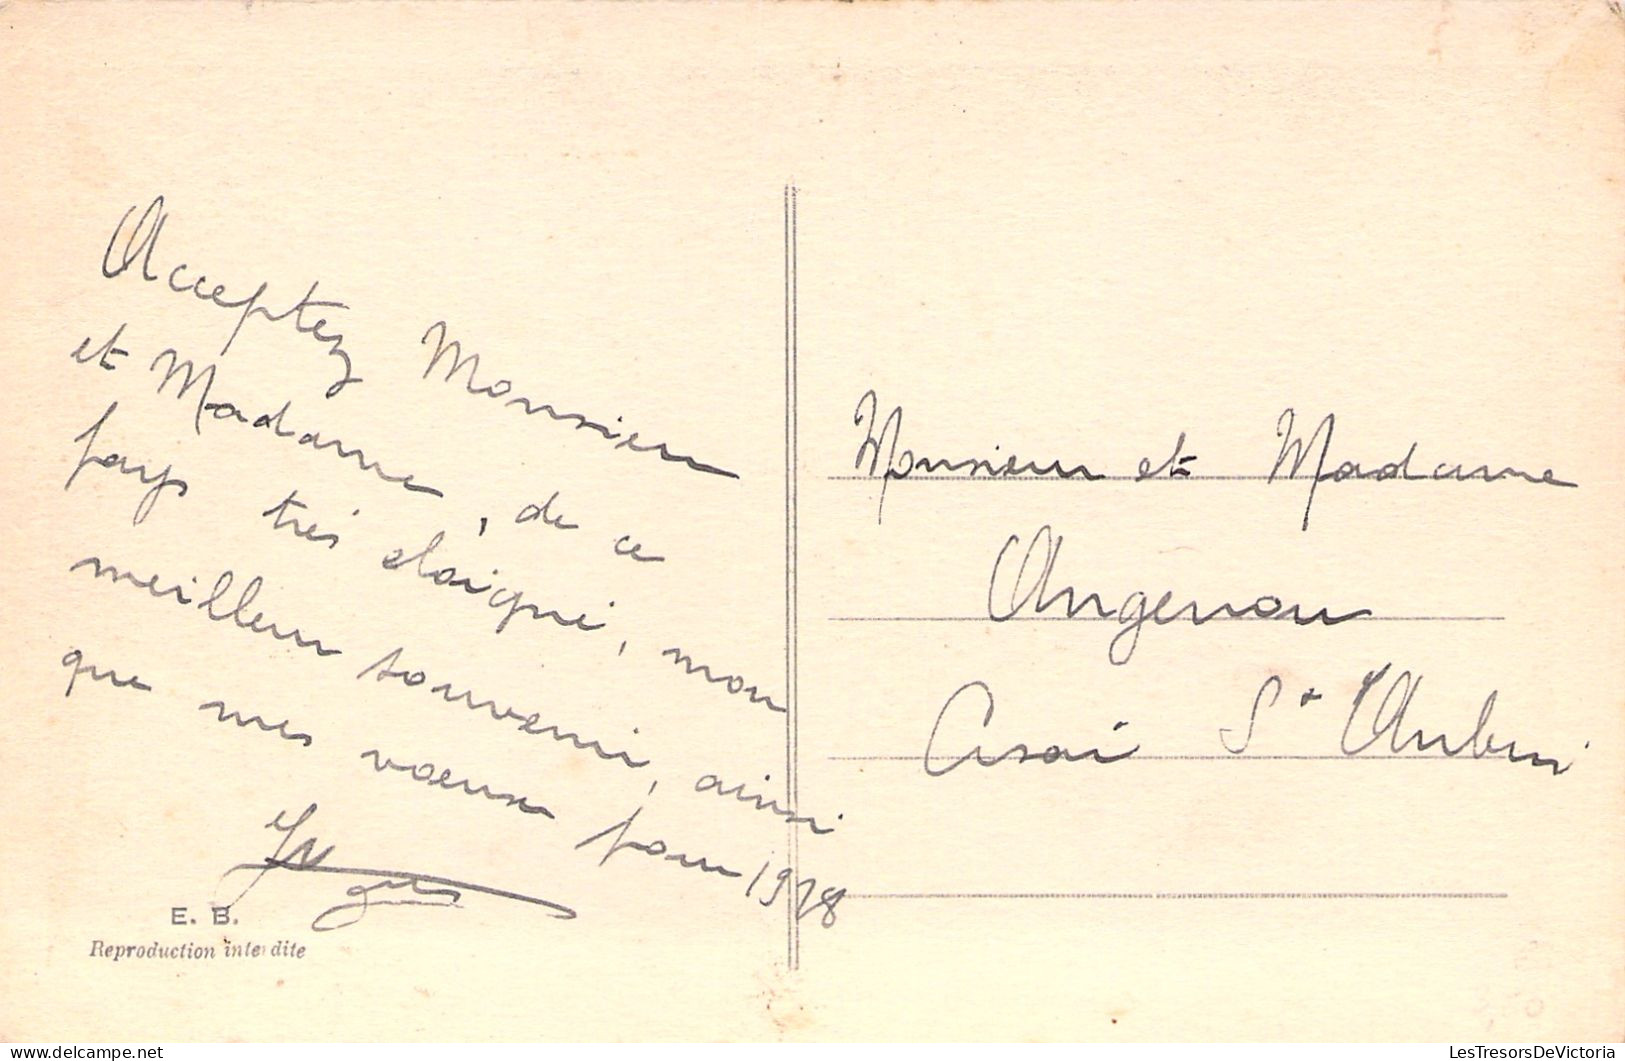 Acceptez Monsieur
et Madame, de ce
pays très eloigné, mon
meilleur souvenir, ainsi
que mes voeux pour 1928
E. B.
Reproduction interdite
Monsieur et Madame
Angenou
St Aubin
LesTresorsDeVictoria